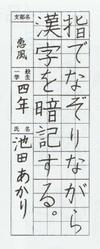 指でなぞりながら
漢字を暗記する。
支部名
恵風
学年
一般
校生
四年
氏名
池田あかり